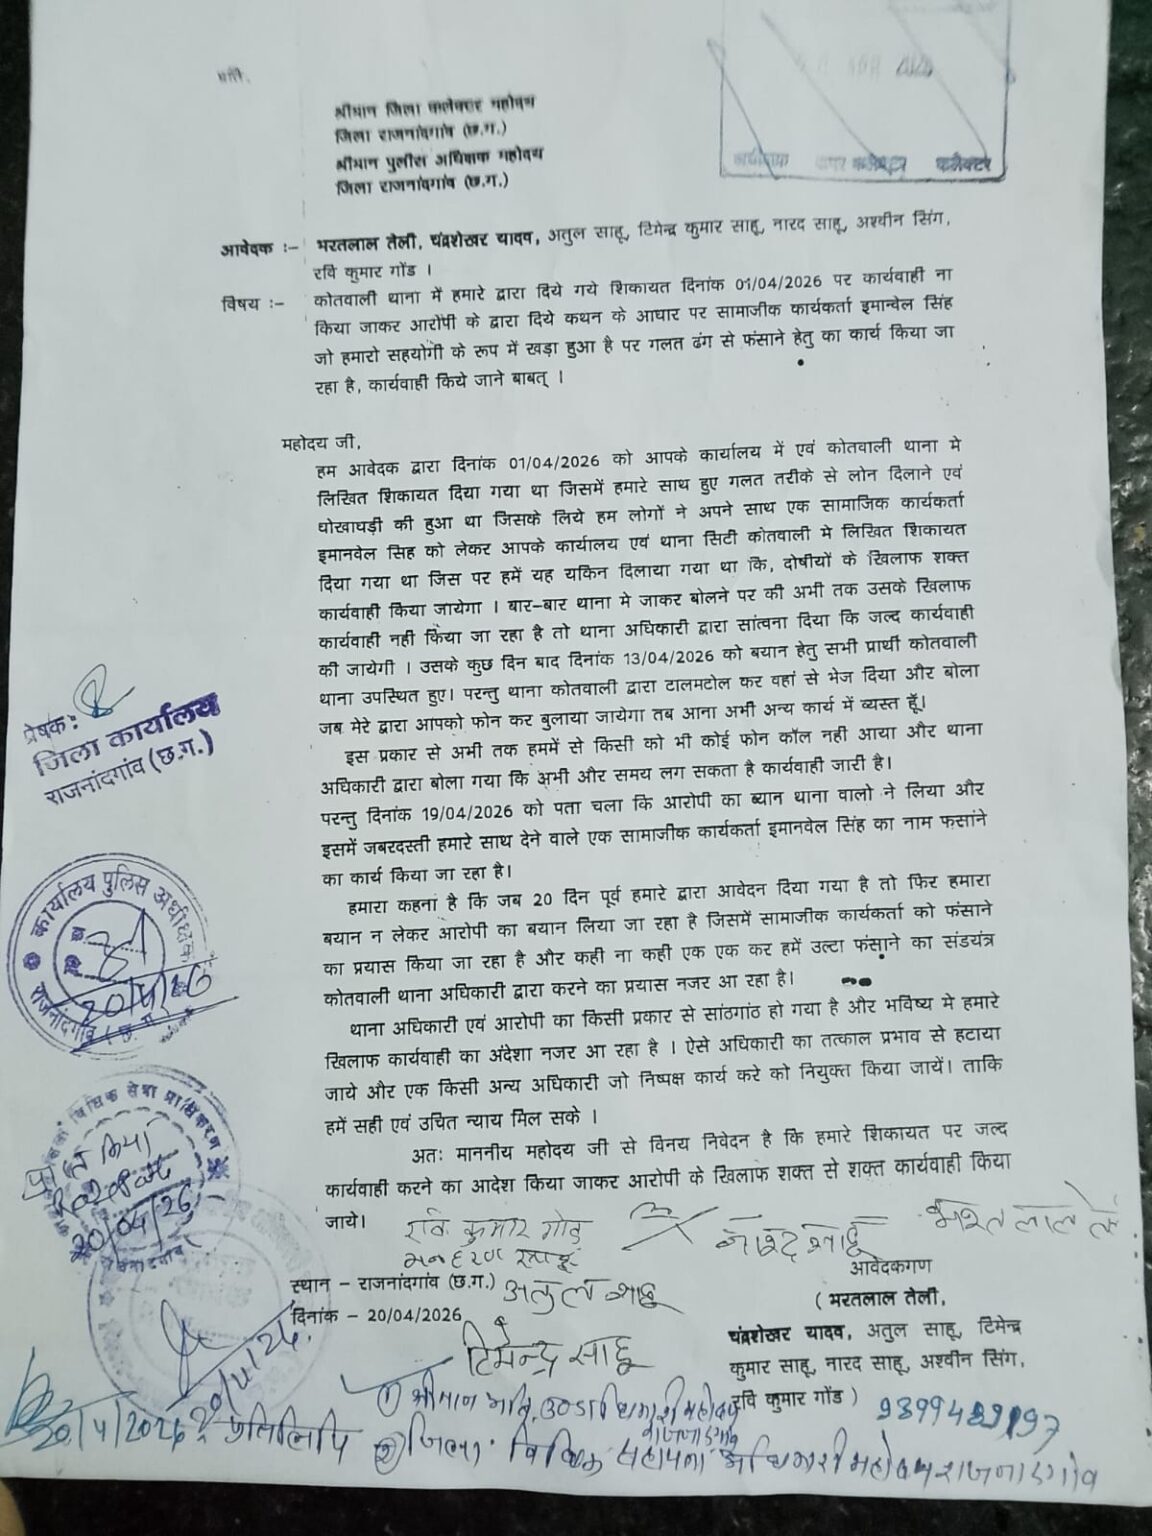 प्रति,
श्रीमान जिला कलेक्टर महोदय
जिला राजनांदगांव (छ.ग.)
श्रीमान पुलीस अधिक्षक महोदय
जिला राजनांदगांव (छ.ग.)
कलेक्टर
आवेदक :– भरतलाल तेली, चंद्रशेखर यादव, अतुल साहू, टिमेन्द्र कुमार साहू, नारद साहू, अश्वीन सिंग,
रवि कुमार गोंड ।
विषय :– कोतवाली थाना में हमारे द्वारा दिये गये शिकायत दिनांक 01/04/2026 पर कार्यवाही ना
किया जाकर आरोपी के द्वारा दिये कथन के आधार पर सामाजीक कार्यकर्ता इमान्वेल सिंह
जो हमारो सहयोगी के रूप में खड़ा हुआ है पर गलत ढंग से फंसाने हेतु का कार्य किया जा
रहा है, कार्यवाही किये जाने बाबत् ।
महोदय जी,
हम आवेदक द्वारा दिनांक 01/04/2026 को आपके कार्यालय में एवं कोतवाली थाना मे
लिखित शिकायत दिया गया था जिसमें हमारे साथ हुए गलत तरीके से लोन दिलाने एवं
धोखाधड़ी की हुआ था जिसके लिये हम लोगों ने अपने साथ एक सामाजिक कार्यकर्ता
इमानवेल सिह को लेकर आपके कार्यालय एवं थाना सिटी कोतवाली मे लिखित शिकायत
दिया गया था जिस पर हमें यह यकिन दिलाया गया था कि, दोषीयों के खिलाफ शक्त
कार्यवाही किया जायेगा । बार–बार थाना मे जाकर बोलने पर की अभी तक उसके खिलाफ
कार्यवाही नही किया जा रहा है तो थाना अधिकारी द्वारा सांत्वना दिया कि जल्द कार्यवाही
की जायेगी । उसके कुछ दिन बाद दिनांक 13/04/2026 को बयान हेतु सभी प्रार्थी कोतवाली
थाना उपस्थित हुए। परन्तु थाना कोतवाली द्वारा टालमटोल कर वहां से भेज दिया और बोला
जब मेरे द्वारा आपको फोन कर बुलाया जायेगा तब आना अभी अन्य कार्य में व्यस्त हूँ।
इस प्रकार से अभी तक हममें से किसी को भी कोई फोन कॉल नही आया और थाना
अधिकारी द्वारा बोला गया कि अभी और समय लग सकता है कार्यवाही जारी है।
परन्तु दिनांक 19/04/2026 को पता चला कि आरोपी का ब्यान थाना वालो ने लिया और
इसमें जबरदस्ती हमारे साथ देने वाले एक सामाजीक कार्यकर्ता इमानवेल सिंह का नाम फसांने
का कार्य किया जा रहा है।
हमारा कहना है कि जब 20 दिन पूर्व हमारे द्वारा आवेदन दिया गया है तो फिर हमारा
बयान न लेकर आरोपी का बयान लिया जा रहा है जिसमें सामाजीक कार्यकर्ता को फंसाने
का प्रयास किया जा रहा है और कही ना कही एक एक कर हमें उल्टा फंसाने का संडयंत्र
कोतवाली थाना अधिकारी द्वारा करने का प्रयास नजर आ रहा है।
थाना अधिकारी एवं आरोपी का किसी प्रकार से सांठगांठ हो गया है और भविष्य मे हमारे
खिलाफ कार्यवाही का अंदेशा नजर आ रहा है । ऐसे अधिकारी का तत्काल प्रभाव से हटाया
जाये और एक किसी अन्य अधिकारी जो निष्पक्ष कार्य करे को नियुक्त किया जायें। ताकि
हमें सही एवं उचित न्याय मिल सके ।
अतः माननीय महोदय जी से विनय निवेदन है कि हमारे शिकायत पर जल्द
कार्यवाही करने का आदेश किया जाकर आरोपी के खिलाफ शक्त से शक्त कार्यवाही किया
जाये।
प्रेषक:
जिला कार्यालय
राजनांदगांव (छ.ग.)
कार्यालय पुलिस अधीक्षक
राजनांदगांव (छ.ग.)
20/4/26
विधिक सेवा प्राधिकरण
प्राप्त किया
20/04/26
रवि कुमार गोंड
नारद साहू
भरत लाल
साहू
स्थान – राजनांदगांव (छ.ग.)
अतुल साहू
दिनांक – 20/04/2026
टिमेन्द्र साहू
आवेदकगण
( भरतलाल तेली,
चंद्रशेखर यादव, अतुल साहू, टिमेन्द्र
कुमार साहू, नारद साहू, अश्वीन सिंग,
रवि कुमार गोंड )
20/4/2026
प्रतिलिपि
① श्रीमान
② जिला विधिक सहायता अधिकारी महोदय राजनांदगांव